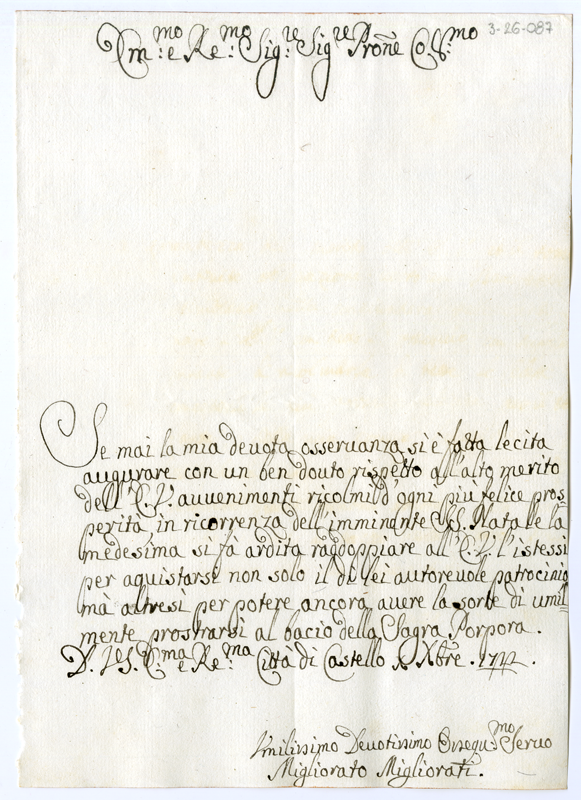 3-26-087
Em:mo e Re:mo Sig:re Sig:re Prõne Col:mo
Se mai la mia deuota osseruanza si è fatta lecita
augurare con un ben douto rispetto all'alto merito
dell'E. V. auuenimenti ricolmi d'ogni più felice pros=
perità in ricorrenza dell'imminente SS. Natale la
medesima si fà ardita raddoppiare all'E. V. l'istessi
per aquistarsi non solo il di lei autoreuole patrocinio
mà altresì per potere ancora auere la sorte di umil=
mente prostrarsi al bacio della Sagra Porpora.
D. V. S. E:ma e Re:ma Città di Castello Xbre.
Vmilissimo Deuotissimo Ossequ:mo Seruo
Migliorato Migliorati.